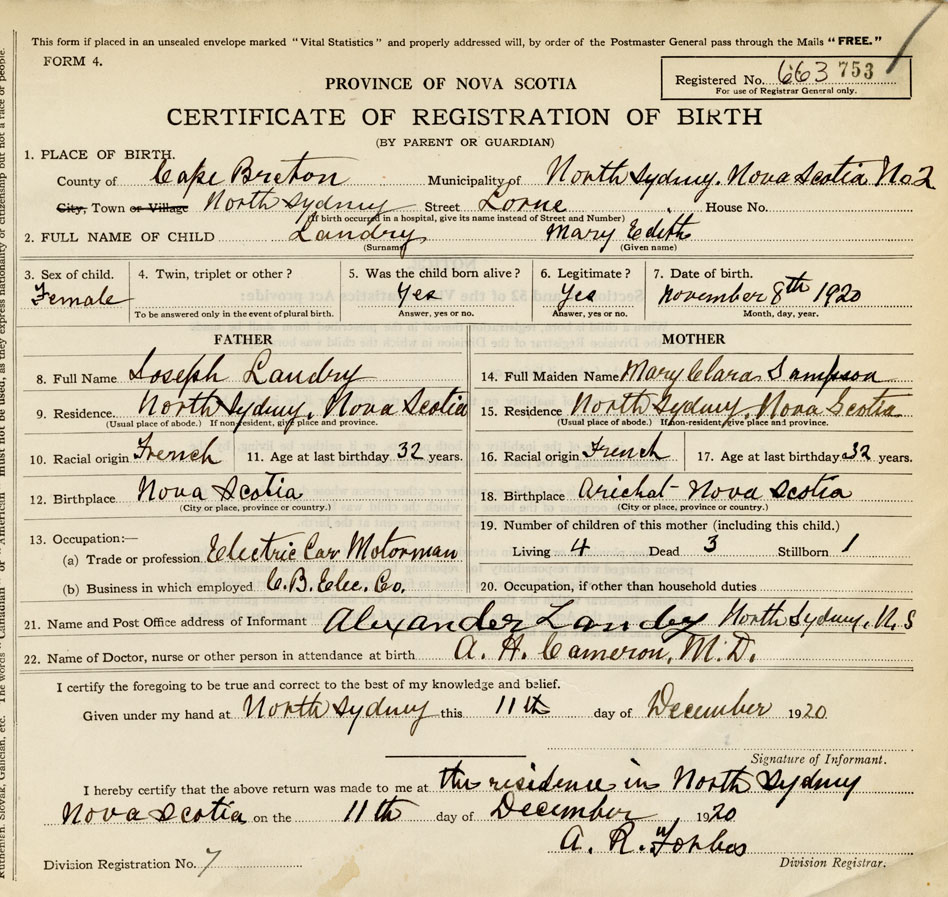 This form if placed in an unsealed envelope marked "Vital Statistics" and properly addressed will, by order of the Postmaster General pass through the Mails "FREE."
FORM 4.
Registered No. 663 753
For use of Registrar General only.
PROVINCE OF NOVA SCOTIA
CERTIFICATE OF REGISTRATION OF BIRTH
(BY PARENT OR GUARDIAN)
1. PLACE OF BIRTH.
County of Cape Breton Municipality of North Sydney. Nova Scotia No 2
City, Town or Village North Sydney Street Lorne House No.
(If birth occurred in a hospital, give its name instead of Street and Number)
2. FULL NAME OF CHILD Landry Mary Edith
(Surname) (Given name)
3. Sex of child. 4. Twin, triplet or other? 5. Was the child born alive? 6. Legitimate? 7. Date of birth.
Female Yes Yes November 8th 1920
To be answered only in the event of plural birth. Answer, yes or no. Answer, yes or no. Month, day, year.
FATHER MOTHER
8. Full Name Joseph Landry 14. Full Maiden Name Mary Clara Sampson
9. Residence. North Sydney, Nova Scotia 15. Residence North Sydney, Nova Scotia
(Usual place of abode.) If non-resident, give place and province. (Usual place of abode.) If non-resident, give place and province.
10. Racial origin French 11. Age at last birthday 32 years. 16. Racial origin French 17. Age at last birthday 32 years.
12. Birthplace Nova Scotia 18. Birthplace Arichat - Nova Scotia
(City or place, province or country.) (City or place, province or country.)
13. Occupation:— 19. Number of children of this mother (including this child.)
(a) Trade or profession Electric Car Motorman Living 4 Dead 3 Stillborn 1
(b) Business in which employed C.B. Elec. Co. 20. Occupation, if other than household duties
21. Name and Post Office address of Informant Alexander Landry North Sydney, N.S
22. Name of Doctor, nurse or other person in attendance at birth A. H. Cameron, M.D.
I certify the foregoing to be true and correct to the best of my knowledge and belief.
Given under my hand at North Sydney this 11th day of December 1920
Signature of Informant.
I hereby certify that the above return was made to me at the residence in North Sydney
Nova Scotia on the 11th day of December 1920
A. R. Forbes
Division Registration No. 7 Division Registrar.